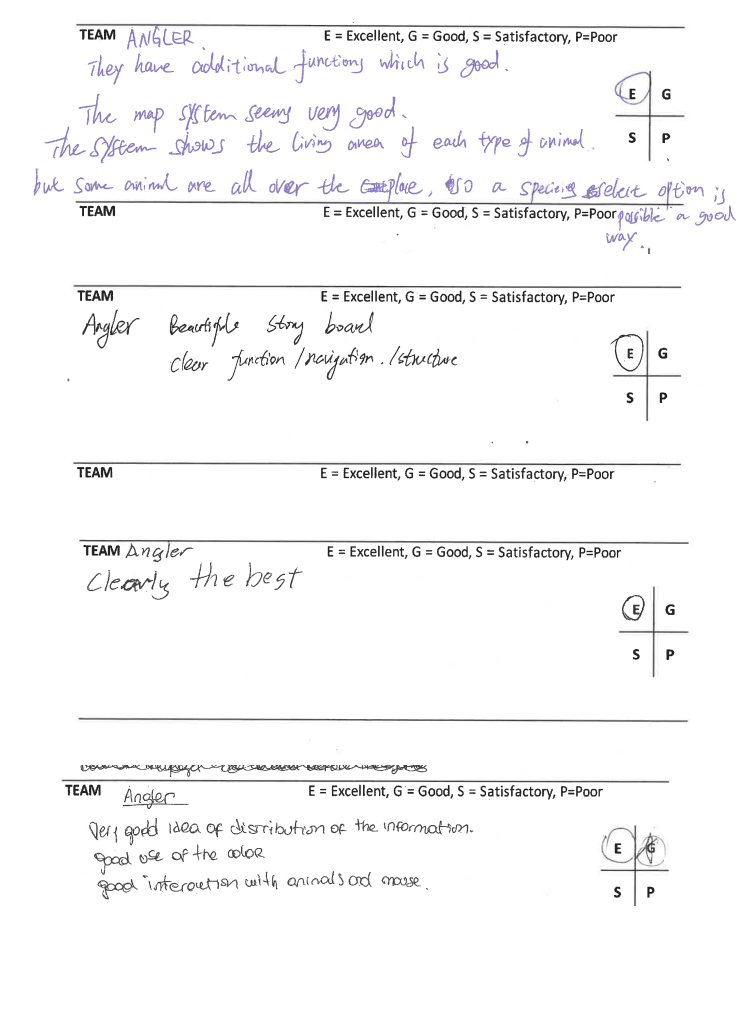 TEAM ANGLER. E = Excellent, G = Good, S = Satisfactory, P=Poor
They have additional functions which is good.
E G
The map system seems very good.
The system shows the living area of each type of animal.
S P
but some animal are all over the place, so a species select option is
possible a good
way.
TEAM E = Excellent, G = Good, S = Satisfactory, P=Poor
TEAM E = Excellent, G = Good, S = Satisfactory, P=Poor
Angler Beautifule story board
clear function / navigation. / structure
E G
S P
TEAM E = Excellent, G = Good, S = Satisfactory, P=Poor
TEAM Angler E = Excellent, G = Good, S = Satisfactory, P=Poor
Clearly the best
E G
S P
TEAM Angler E = Excellent, G = Good, S = Satisfactory, P=Poor
Very good idea of distribution of the information.
good use of the color
E G
good interaction with animals and mouse.
S P